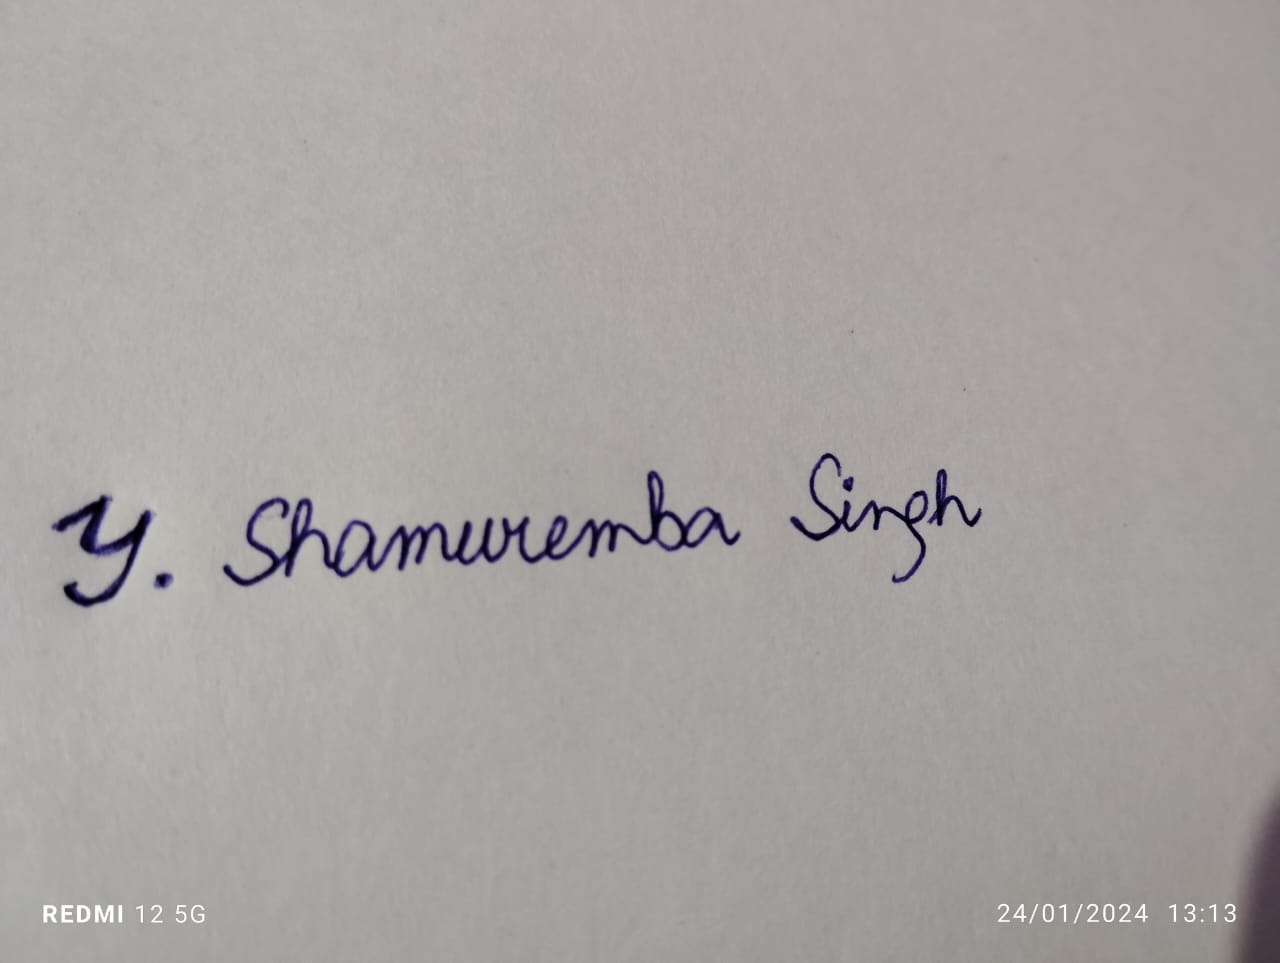 Y. Shamuremba Singh
REDMI 12 5G
24/01/2024 13:13